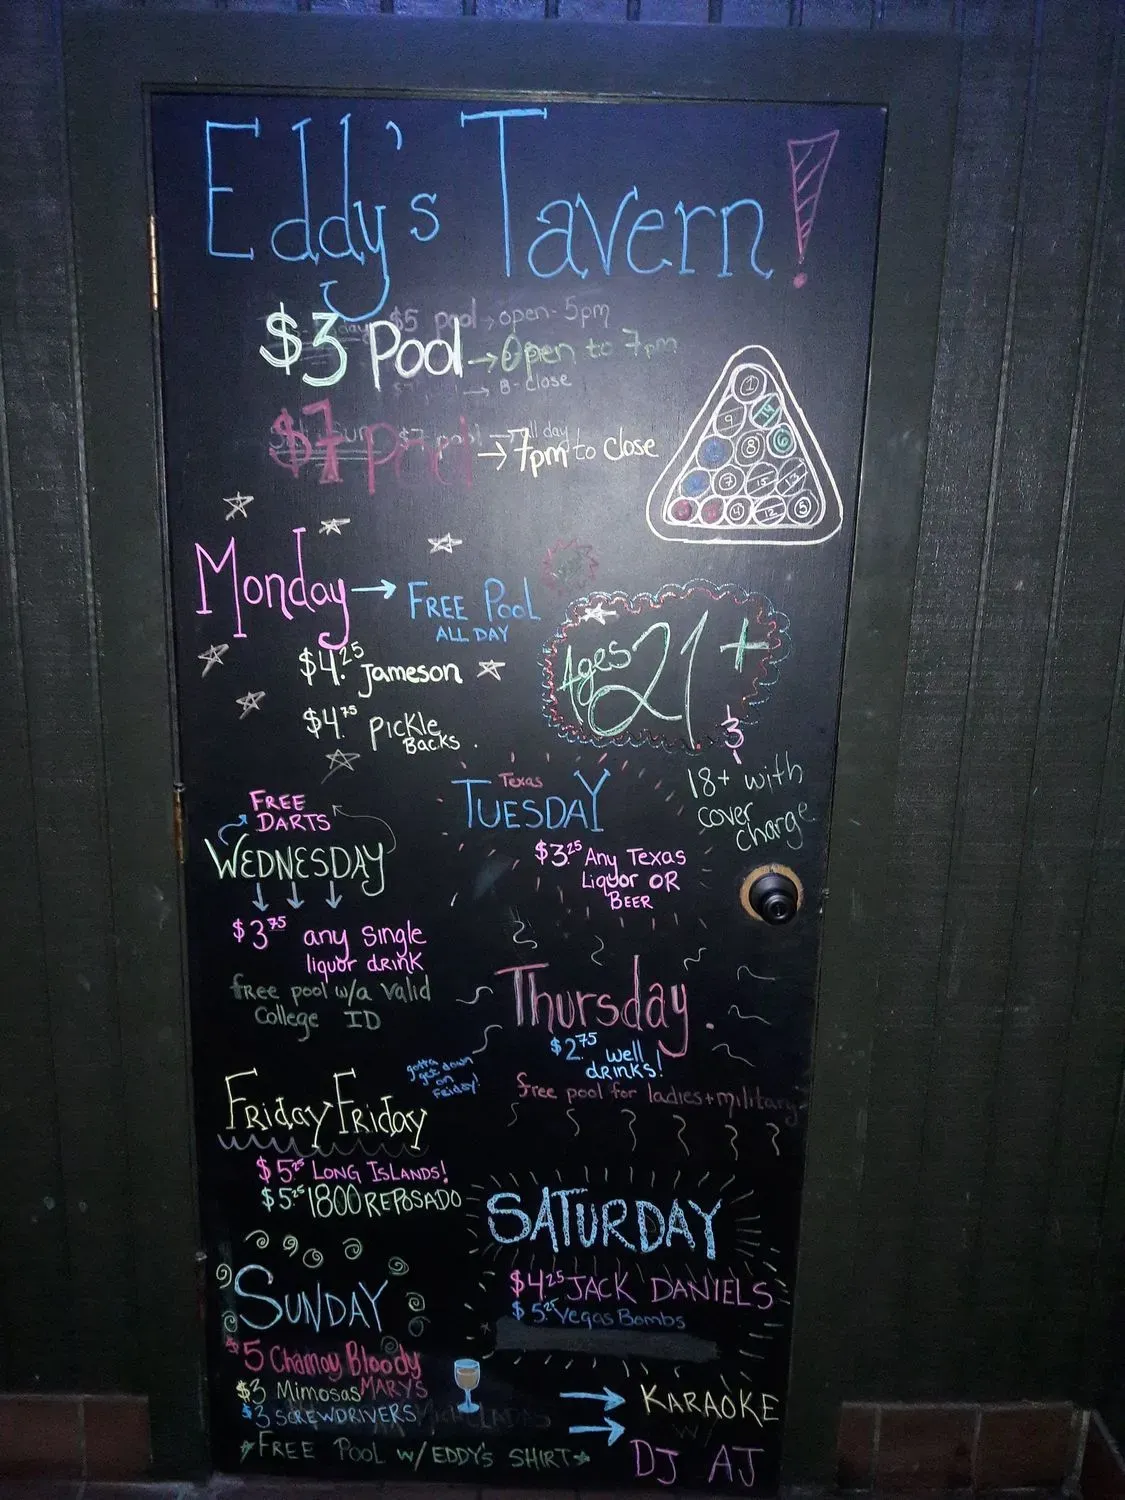 Eddy's Tavern!
$5 pool → open - 5pm
$3 Pool → Open to 7pm
→ 8 - close
$7 pool → all day
$7 Pool → 7pm to close
1
9 14
8 6
7 15 13
4 12 5
Monday → FREE Pool
ALL DAY
$4.25 Jameson
$4.75 Pickle
Backs.
Ages 21+
&
18+ with
cover
charge
Texas
TUESDAY
$3.25 Any Texas
Liquor OR
BEER
FREE
DARTS
WEDNESDAY
$3.75 any single
liquor drink
free pool w/a valid
College ID
Thursday.
$2.75 well
drinks!
free pool for ladies + military
gotta
get down
on
Friday!
Friday Friday
$5.25 LONG ISLANDS!
$5.25 1800 REPOSADO
SATURDAY
$4.25 JACK DANIELS
$5.25 Vegas Bombs
SUNDAY
$5 Chamoy Bloody
MARYS
$3 Mimosas
$3 SCREWDRIVERS
FREE POOL w/ EDDY'S SHIRT
→ KARAOKE
→ W/
DJ AJ